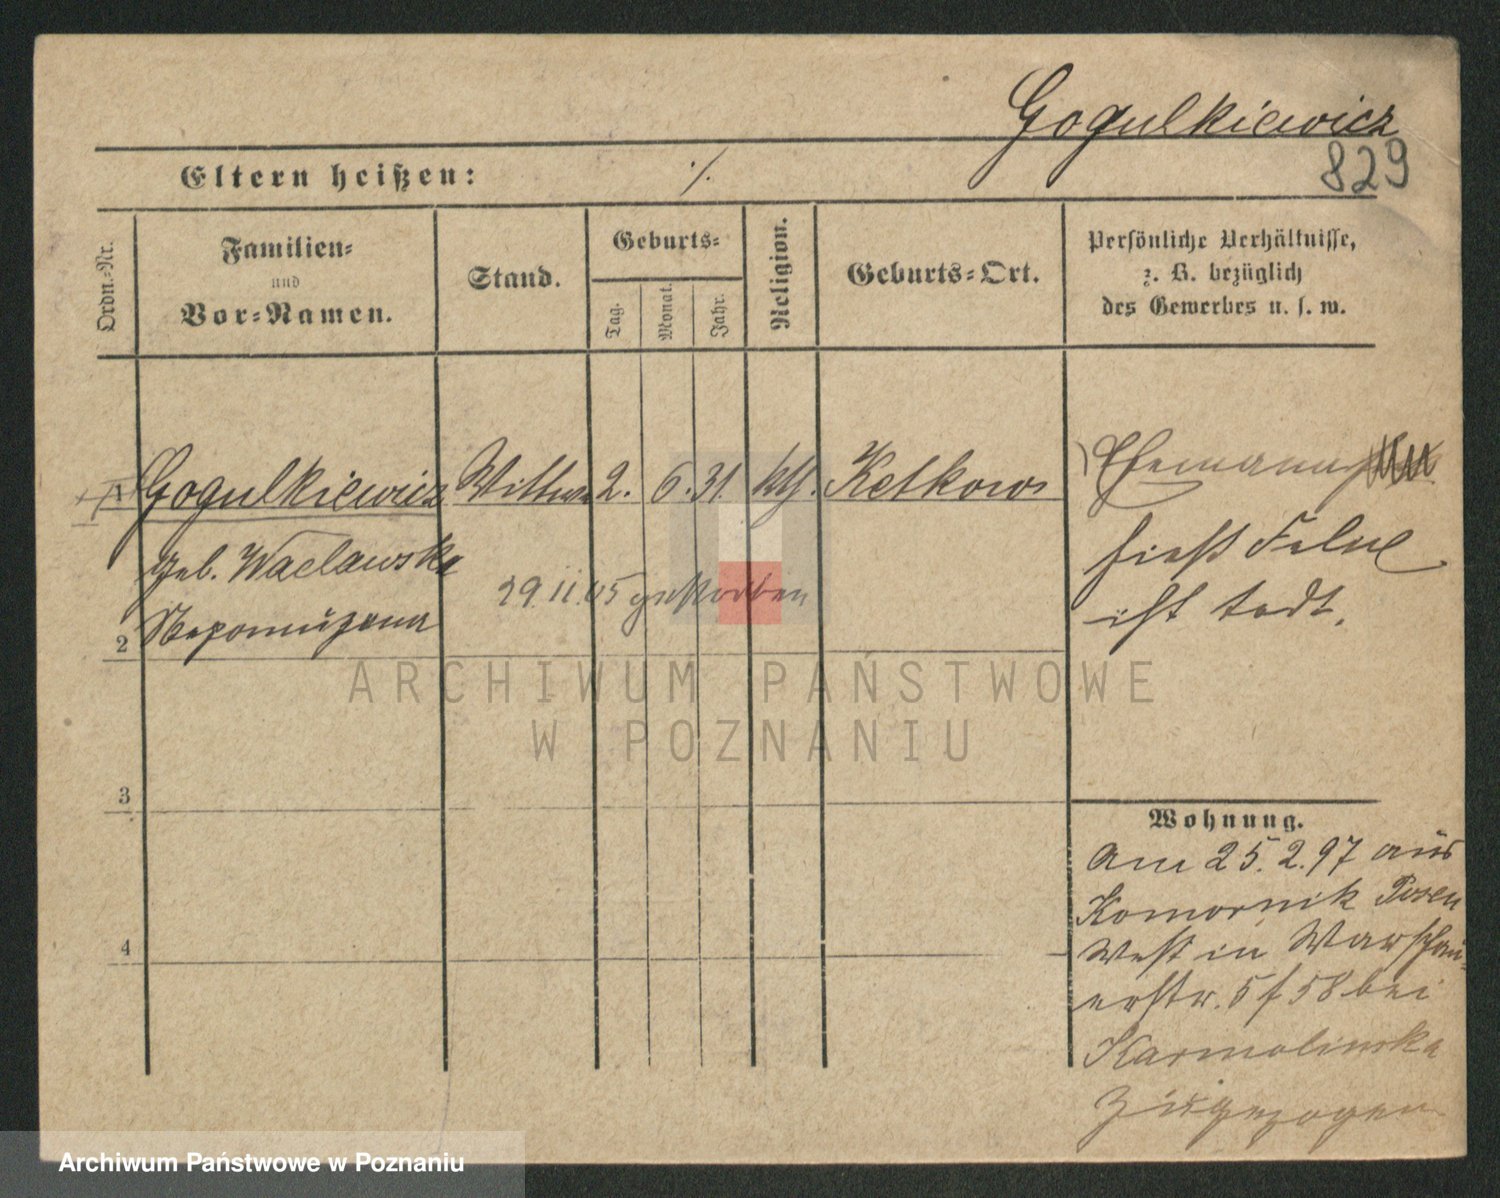 Gogulkiewicz
829
Eltern heißen: ·/.
Ordn.-Nr.
Familien-
und
Vor-Namen.
Stand.
Geburts-
Tag.
Monat.
Jahr.
Religion.
Geburts-Ort.
Persönliche Verhältnisse,
z. B. bezüglich
des Gewerbes u. s. w.
1 Gogulkiewicz Wittwe 2. 6. 31. kth. Ketkowo
geb. Waclawska
Nepomuzena
29.11.05 gestorben
Ehemann
hieß Felix
ist todt.
2
3
4
Wohnung.
Am 25.2.97 aus
Komornik Posen
West in Warschau-
erstr. 5 f 58 bei
Karmolinska
zugezogen
ARCHIWUM PAŃSTWOWE
W POZNANIU
Archiwum Państwowe w Poznaniu